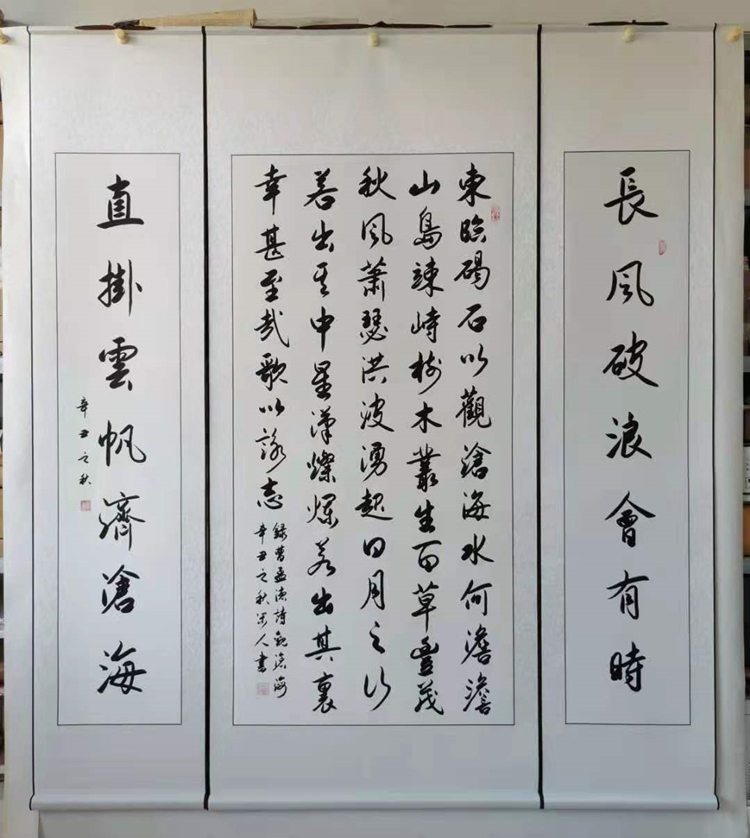 長風破浪會有時
東臨碣石以觀滄海水何澹澹
山島竦峙樹木叢生百草豐茂
秋風蕭瑟洪波湧起日月之行
若出其中星漢燦爛若出其裏
幸甚至哉歌以詠志
錄曹孟德詩觀滄海
辛丑之秋人書
直掛雲帆濟滄海
辛丑之秋